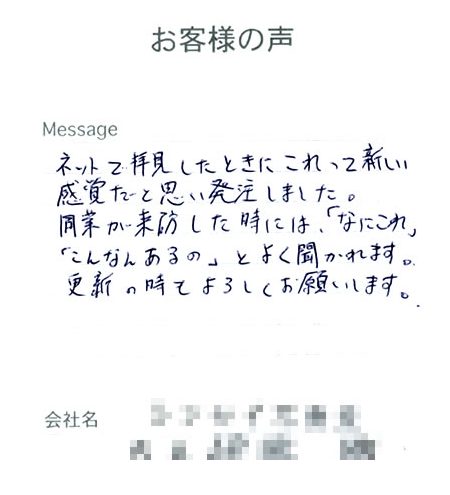 お客様の声
Message
ネットで拝見したときにこれって新しい
感覚だと思い発注しました。
同業が来訪した時には、「なにこれ」
「こんなんあるの」とよく聞かれます。
更新の時もよろしくお願いします。
会社名